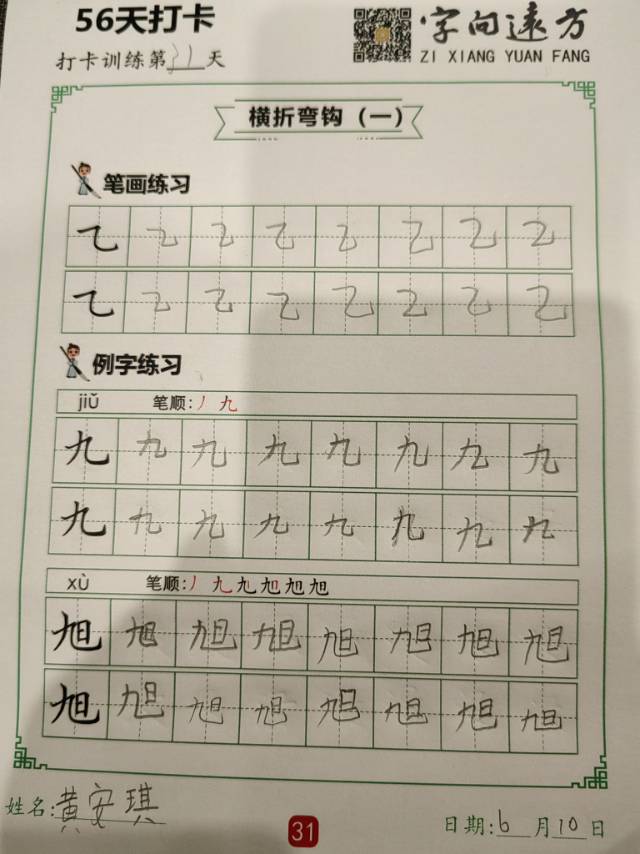 56天打卡
字向远方
打卡训练第31天
ZI XIANG YUAN FANG
横折弯钩（一）
笔画练习
乙 乙 乙 乙 乙 乙 乙 乙
乙 乙 乙 乙 乙 乙 乙 乙
例字练习
jiǔ 笔顺:丿九
九 九 九 九 九 九 九 九
九 九 九 九 九 九 九 九
xù 笔顺:丿九九旭旭旭
旭 旭 旭 旭 旭 旭 旭 旭
旭 旭 旭 旭 旭 旭 旭 旭
姓名:黄安琪
31
日期:6月10日